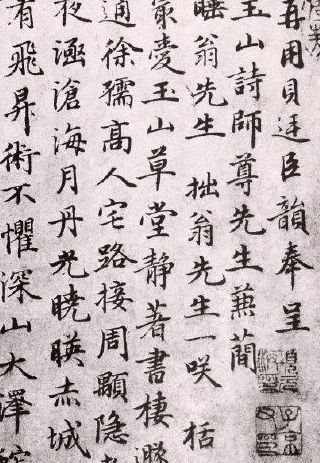 再用貝廷臣韻奉呈
玉山詩師尊先生蕪蕑
睡翁先生 拙翁先生一咲 栝
最愛玉山草堂静著書棲
通徐孺高人宅路接周顒隐
夜涵滄海月丹光曉暎赤城
有飛昇術不懼深山大澤